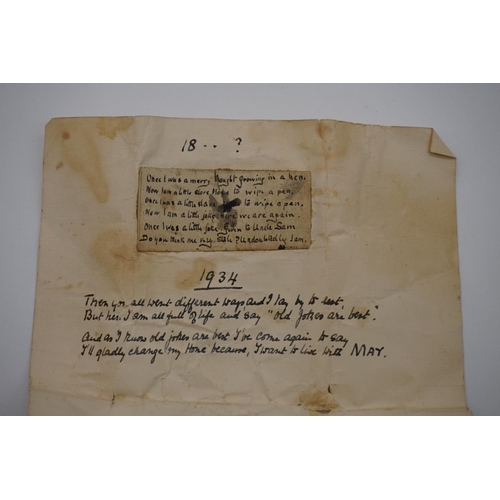 18 . . ?
Once I was a merry thought growing in a hen,
Now I am a little slave made to wipe a pen,
Once I was a little slave to wipe a pen,
Now I am a little joke, here we are again.
Once I was a little joke, given to Uncle Sam
Do you think me very ? Undoubtedly I am.
1934
Then you all went different ways and I lay by to rest,
But here I am all full of life and say "old jokes are best".
And as I know old jokes are best I've come again to say
I'll gladly change my Home because, I want to live with MAY.